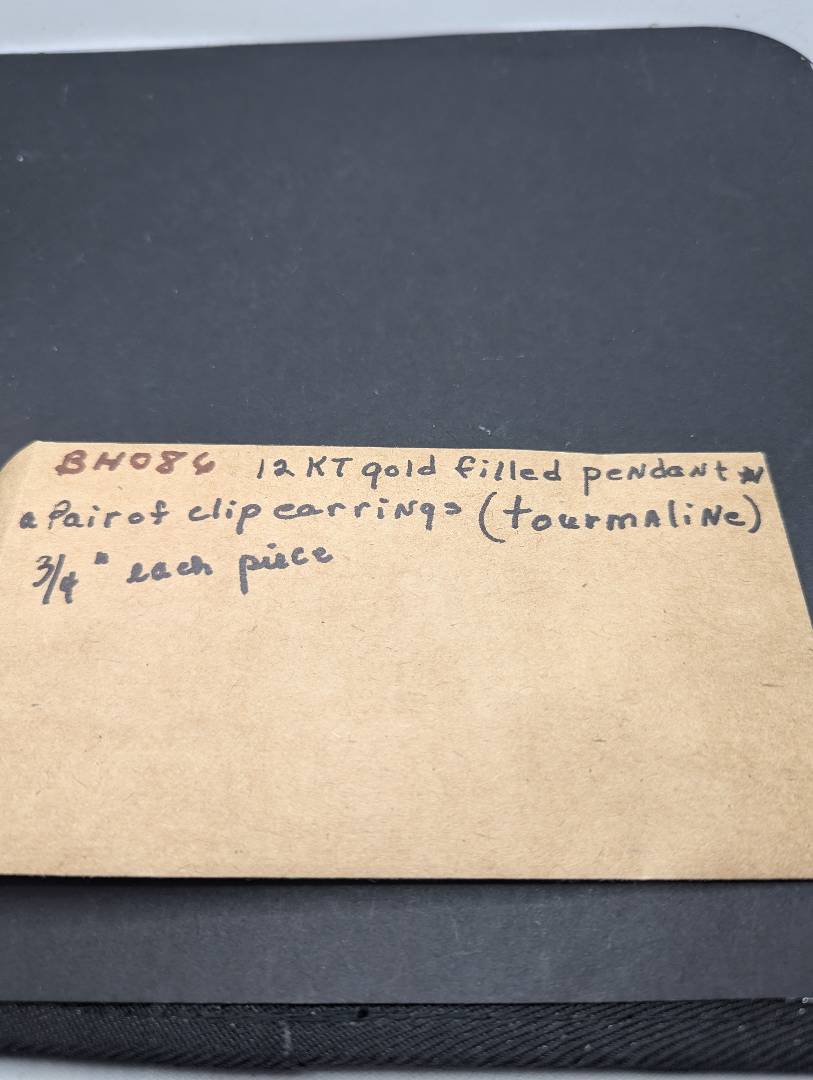 BH086 12 KT gold filled pendant N
a Pair of clip earrings (tourmaline)
3/4" each piece